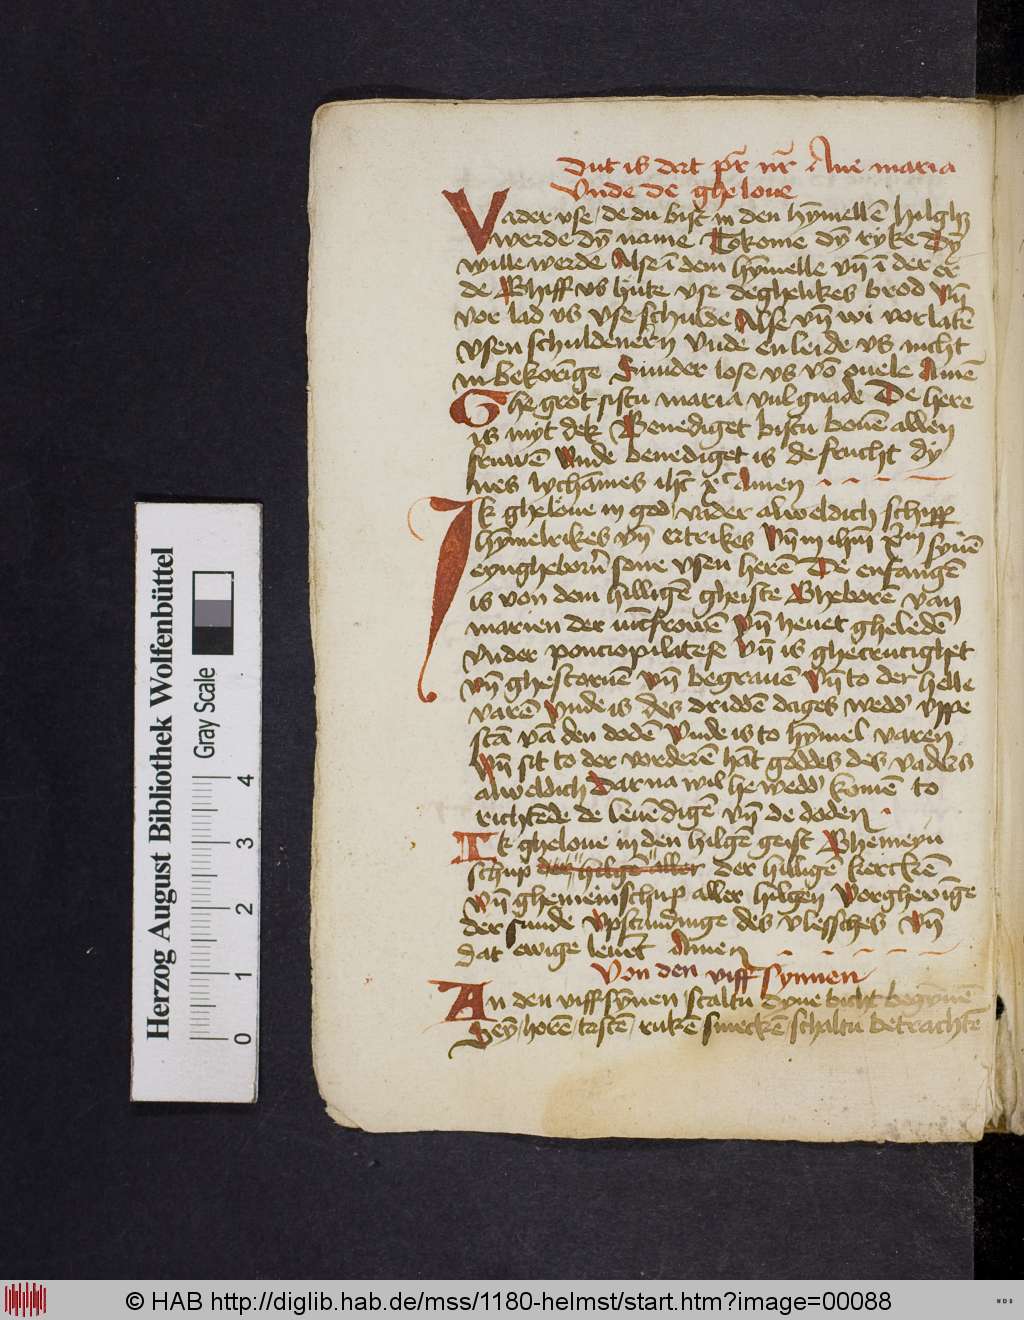 Dut is dat pr̄ nr̄ Aue maria
Unde de gheloue
Vader vse / de du bist in den hȳmellē hilghz
werde dȳ name Tokome dȳ ryke Dȳ
wille werde Alse ī dem hȳmelle vn̄ ī der er
de Ghiff vs hute vse deghelikes brod vn̄
vor lad vs vse schulde Alse vn̄ wi vorlatē
vsen schuldenern Unde en leide vs nicht
in bekorīge Sunder lose vs vō ouele Amē
Ghe grot sistu maria vul gnade De here
is myt dek Benediget bistu bouē allen
fruwē Unde benediget is de frucht dȳ
nes lychāmes ihc̄ xc̄ Amen
Ik gheloue in god vader alweldich schipp
hȳmelrikes vn̄ ertrikes Vn̄ in ihm̄ xm̄ synē
eyngheborn̄ sone vsen herē De enfangē
is von dem hilligē gheiste Gheborē van
marien der iūcfrowē Vn̄ heuet gheledē
vnder poncio pilatese Vn̄ is ghecruciget
vn̄ ghestoruē vn̄ begrauē Vn̄ to der helle
varē Unde is des driddē dages wedd' vppe
stā vā den dodē Unde is to hȳmel varen
Vn̄ sit to der vorderē hāt goddes des vaders
alweldich Dar na wil he wedd' komē to
richtēde de leuēdigē vn̄ de doden
Ik gheloue in den hilgē geist Ghemeyn
schup der hilgē aller der hilligē kerckē
Vn̄ ghemeinschup aller hilgen Vorgheuīge
der sunde Upstandinge des vlessches Vn̄
dat ewige leuēt Amen
Von den viff synnen
An den viff sȳnen schaltu dyne bicht begȳnē
Seȳ / horē / tastē / rukē smeckē / schaltu betrachtē
Herzog August Bibliothek Wolfenbüttel
Gray Scale
0 1 2 3 4
© HAB http://diglib.hab.de/mss/1180-helmst/start.htm?image=00088